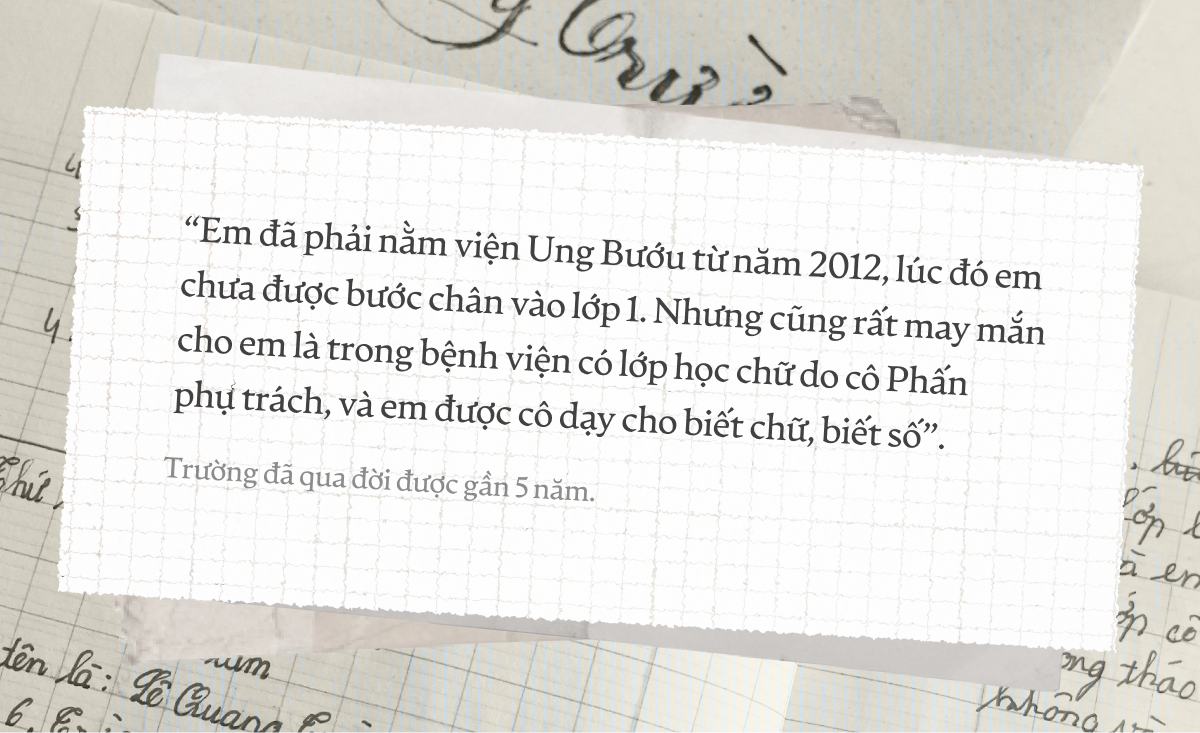 “Em đã phải nằm viện Ung Bướu từ năm 2012, lúc đó em
chưa được bước chân vào lớp 1. Nhưng cũng rất may mắn
cho em là trong bệnh viện có lớp học chữ do cô Phấn
phụ trách, và em được cô dạy cho biết chữ, biết số”.
Trường đã qua đời được gần 5 năm.
Thứ
lớp
em
cô
tên là: Lê Quang
tháo
6. 
không